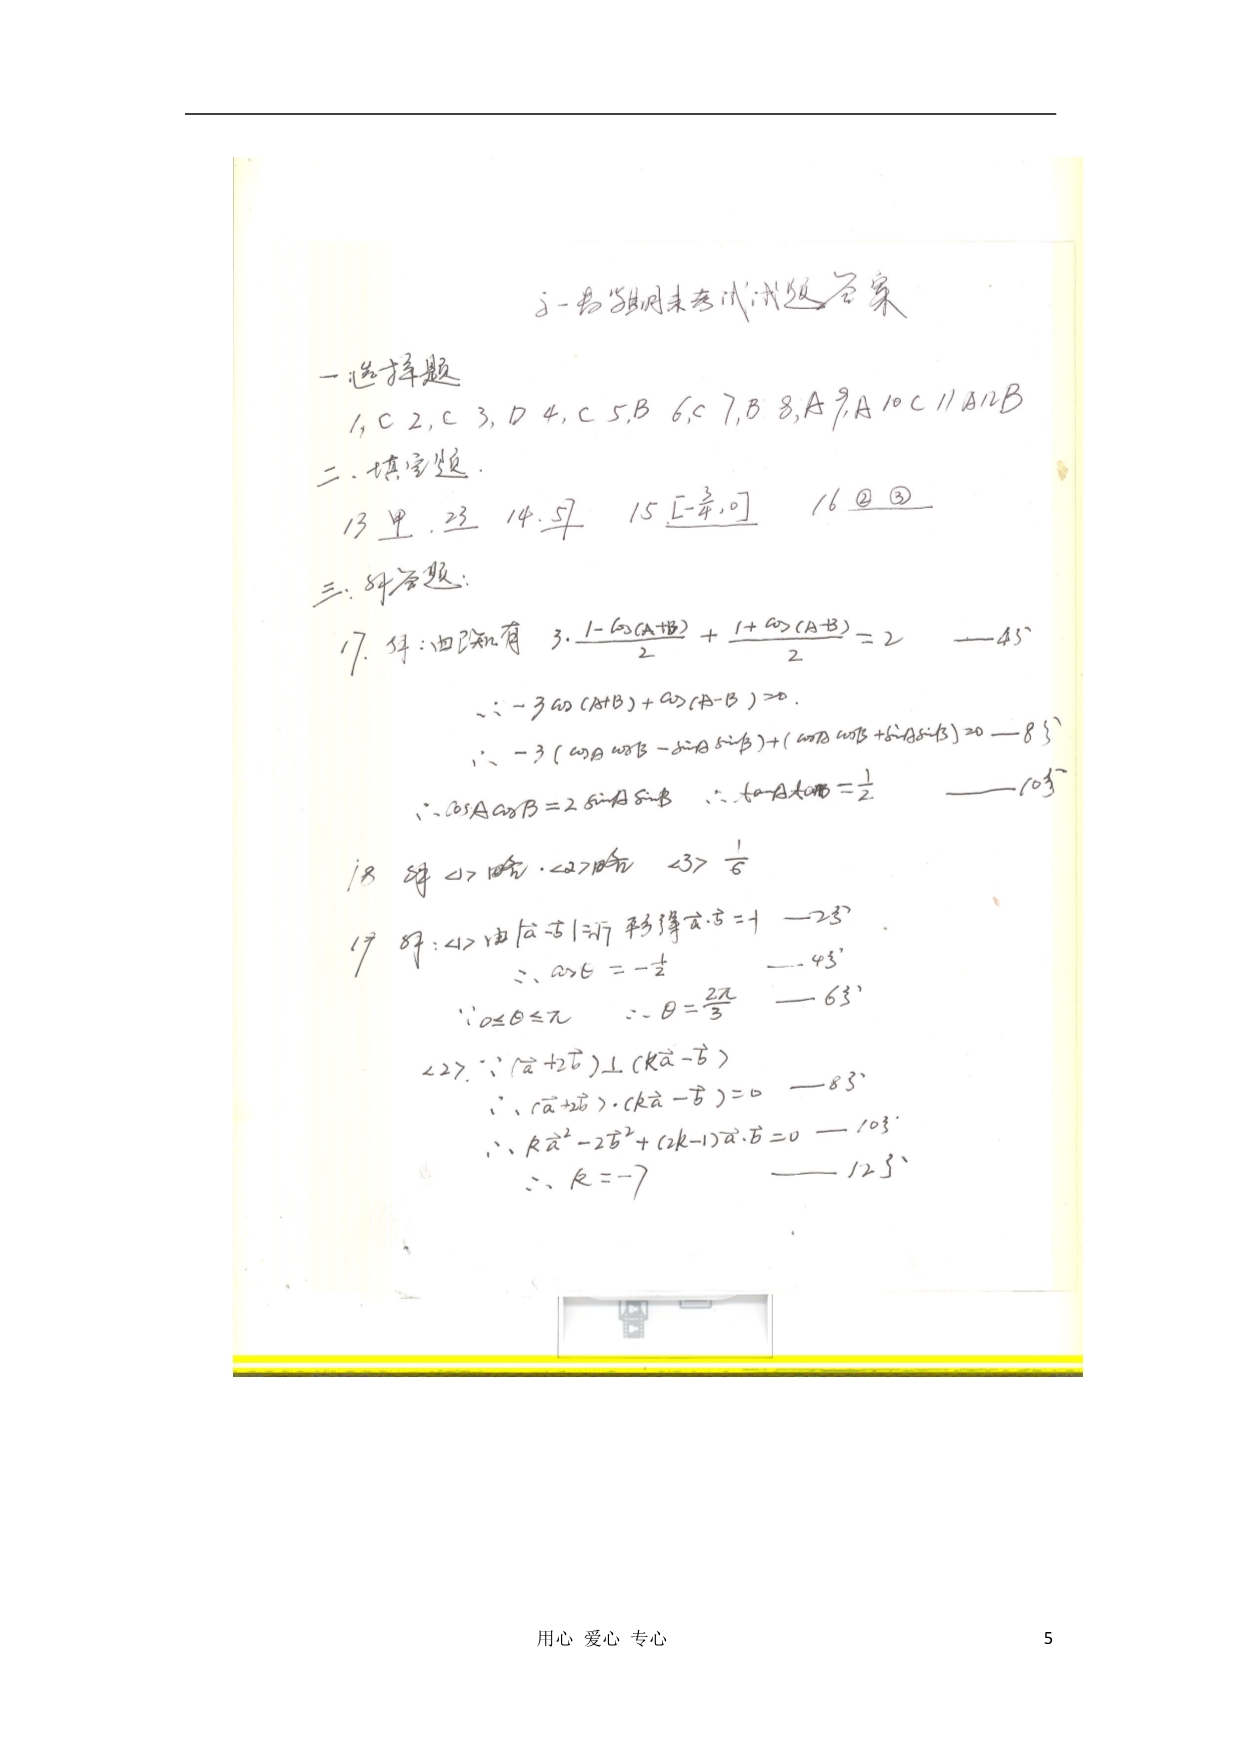 高一数学期末考试试题答案
一.选择题
1, C 2, C 3, D 4, C 5, B 6, C 7, B 8, A 9, A 10 C 11 A 12 B
二.填空题.
13 甲.23 14.57 15 [-3/4,0] 16 ② ③
三.解答题:
17. 解:由已知有 3·(1-cos(A+B))/2 + (1+cos(A-B))/2 = 2 —4分
∴ -3cos(A+B)+cos(A-B)=0.
∴ -3(cosAcosB-sinAsinB)+(cosAcosB+sinAsinB)=0 —8分
∴cosAcosB=2sinAsinB ∴tanAtanB=1/2 —10分
18 解<1>略.<2>略 <3> 1/6
19 解:<1>由|a⃗-b⃗|=√7 平方得a⃗·b⃗=-1 —2分
∴cosθ=-1/2 —4分
∵0≤θ≤π ∴θ=2π/3 —6分
<2>.∵(a⃗+2b⃗)⊥(ka⃗-b⃗)
∴(a⃗+2b⃗)·(ka⃗-b⃗)=0 —8分
∴ka⃗²-2b⃗²+(2k-1)a⃗·b⃗=0 —10分
∴k=-7 —12分
用心 爱心 专心 5